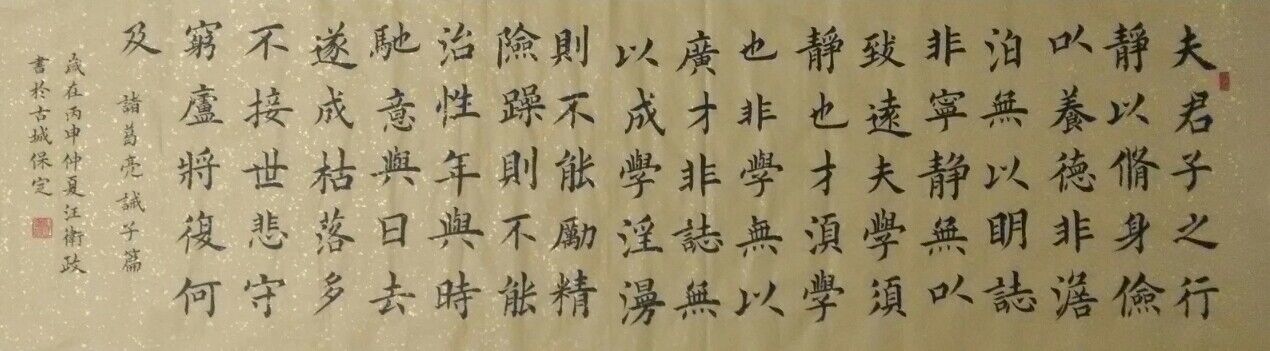 夫君子之行
靜以脩身儉
以養德非澹
泊無以明誌
非寧靜無以
致遠夫學須
靜也才須學
也非學無以
廣才非誌無
以成學淫漫
則不能勵精
險躁則不能
治性年與時
馳意與日去
遂成枯落多
不接世悲守
窮廬將復何
及
諸葛亮誡子篇
歲在丙申仲夏江衛政
書於古城保定